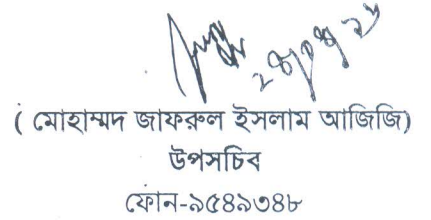 ( মোহাম্মদ জাফরুল ইসলাম আজিজি)
উপসচিব
ফোন-৯৫৪৯৩৪৮